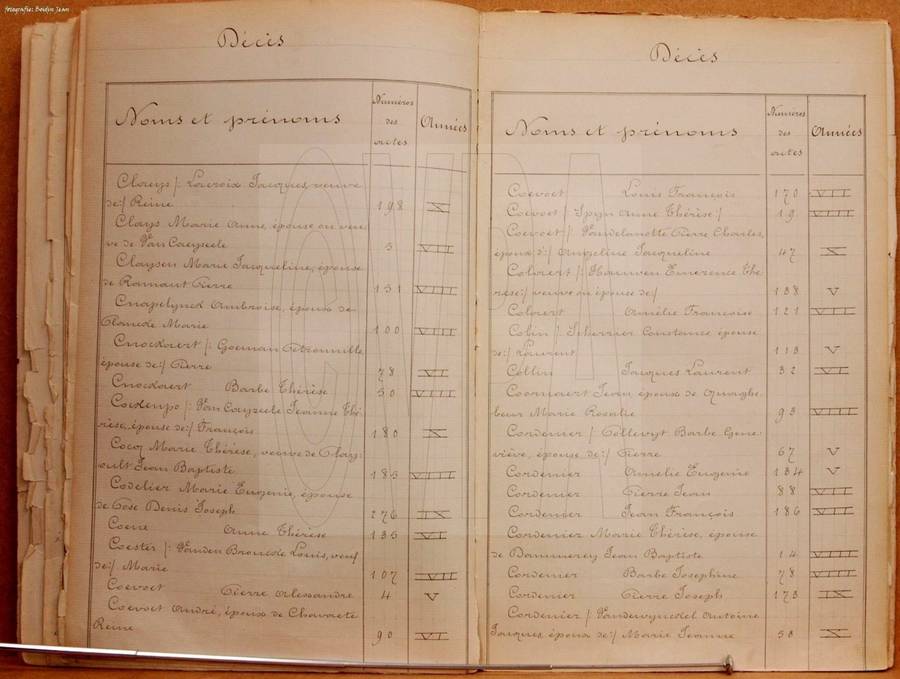 fotografie: Boidyn Jean
Décès
Noms et prénoms
Numéros
des
actes
Années
Claeys /: Lacroix Jacques, veuve
de:/ Reine 198 X
Claeys Marie Anne, épouse ou veu-
ve de Van Caeyseele 3 VIII
Claysen Marie Jacqueline, épouse
de Ramaut Pierre 131 VIII
Cnapelynck Ambroise, époux de
Plancke Marie 100 VIII
Cnockaert /: Goeman Pétronnille
épouse de:/ Pierre 78 VI
Cnockaert Barbe Thérèse 50 VIII
Van Cayzeele Jeanne Thé-
rèse, épouse de:/ François 180 X
Cocq Marie Thérèse, veuve de
Jean Baptiste 185 VIII
Codelier Marie Eugenie, épouse
de Denis Joseph 276 IX
Coene Anne Thérèse 135 VI
Coester /: Vanden Broucke Louis, veuf
de:/ Marie 107 VII
Coevoet Pierre Alexandre 4 V
Coevoet André, époux de Chavaete
Reine 90 VI
Décès
Noms et prénoms
Numéros
des
actes
Années
Coevoet Louis François 170 VII
Coevoet /: Spyn Anne Thérèse:/ 19 VIII
Coevoet /: Vandelanotte Pierre Charles,
époux d':/ Angeline Jacqueline 47 X
Colaert /: Hauwen Emerence Thé-
rèse:/ veuve ou épouse de:/ 138 V
Colaert Amélie Françoise 121 VII
Colin /: Scherrier Constance épouse
de:/ Laurent 113 V
Collin Jacques Laurent 32 VI
Coornaert Jean, époux de Quaghe-
beur Marie Rosalie 93 VIII
Cordenier /: Barbe Gene-
viève, épouse de:/ Pierre 67 V
Cordenier Amélie Eugenie 134 V
Cordenier Pierre Jean 88 VII
Cordenier Jean François 186 VII
Cordenier Marie Thérèse, épouse
de Dammerey Jean Baptiste 14 VIII
Cordenier Barbe Josephine 78 VIII
Cordenier Pierre Joseph 173 IX
Cordenier /: Vandewynckel Antoine
Jacques, époux de:/ Marie Jeanne 58 X